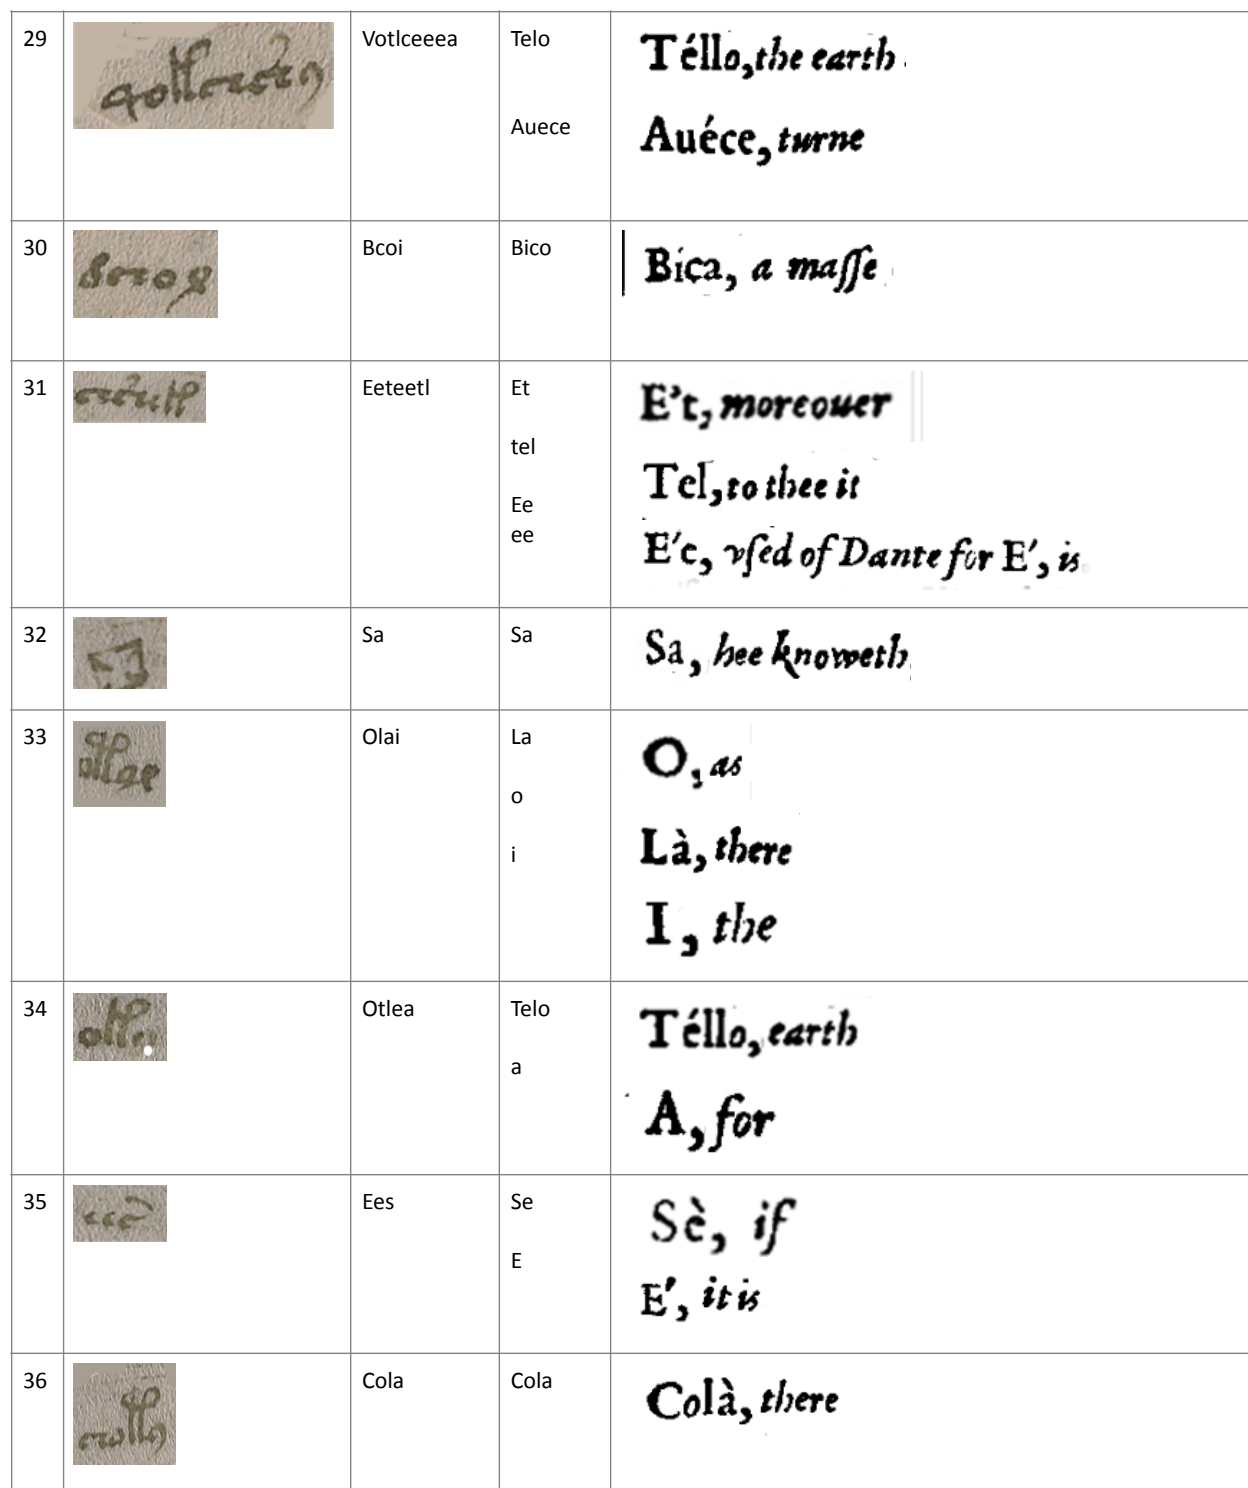 29 Votlceeea Telo Téllo, the earth
Auece Auéce, turne
30 Bcoi Bico Bica, a maſſe
31 Eeteetl Et E't, moreouer
tel Tel, to thee it
Ee E'e, vſed of Dante for E', is
ee
32 Sa Sa Sa, hee knoweth
33 Olai La O, as
o Là, there
i I, the
34 Otlea Telo Téllo, earth
a A, for
35 Ees Se Sè, if
E E', it is
36 Cola Cola Colà, there